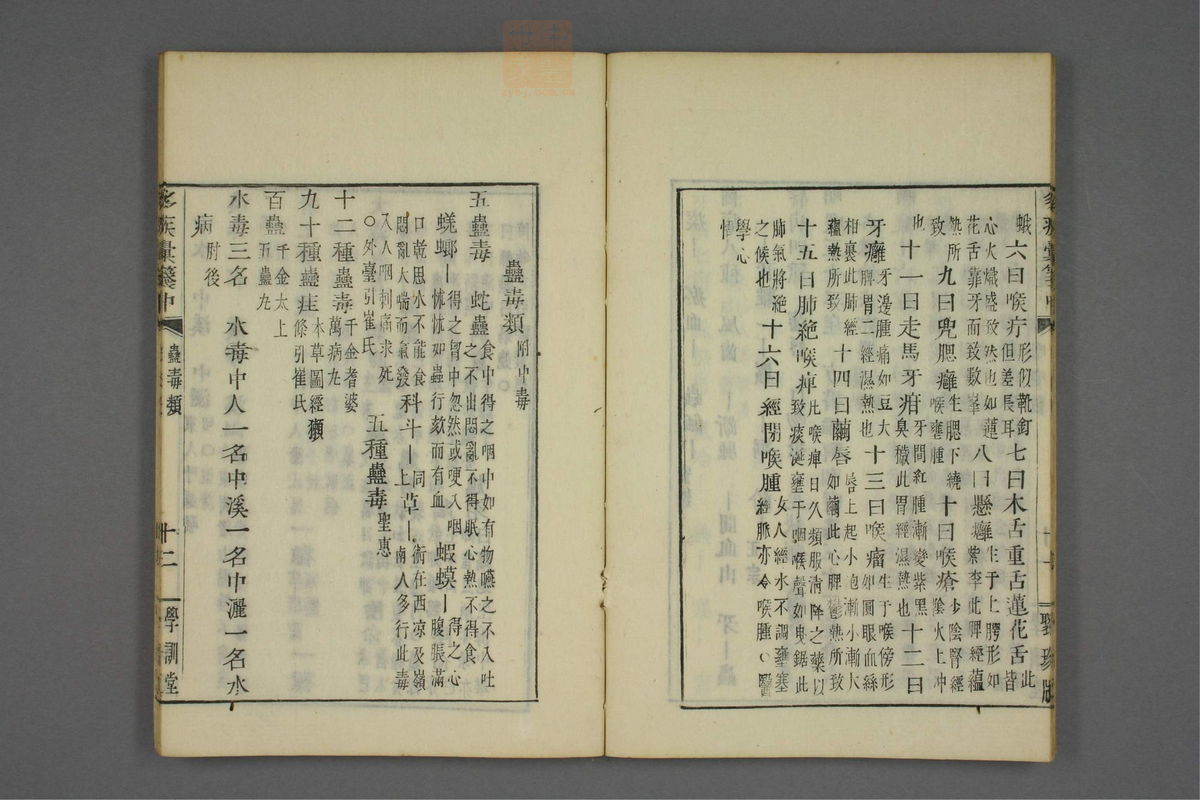 蛾六曰喉疔形似靴釘但差長耳七曰木舌重舌蓮花舌此皆
心火熾盛致然也如蓮花舌靠牙而致數峯八曰懸癰生于上腭形如紫李此脾經蘊
熱所致九曰兜腮癰生腮下繞喉壅腫十曰喉瘡少陰腎經陰火上冲
也十一曰走馬牙疳牙間紅腫漸變紫黑臭穢此胃經濕熱也十二曰
牙癰牙邊腫痛如豆大脾胃二經濕熱也十三曰喉瘤生于喉傍形如圓眼血絲
相裹此肺經蘊熱所致十四曰繭唇唇上起小泡漸小漸大如繭此心脾鬱熱所致
十五曰肺絶喉痺凡喉痺日久頻服清降之藥以致痰涎壅于咽喉聲如曳鋸此
肺氣將絶之候也十六曰經閉喉腫女人經水不調壅塞經脈亦令喉腫○醫
學心悟
蠱毒類附中毒
五蠱毒 蛇蠱食中得之咽中如有物嚥之不入吐之不出悶亂不得眠心熱不得食
蜣螂ー得之胷中忽然或哽入咽怵怵如蟲行欬而有血 蝦蟆ー得之心腹脹滿
口乾思水不能食悶亂大喘而氣發科斗ー同上草ー術在西凉及嶺南人多行此毒
入人咽刺痛求死○外臺引崔氏 五種蠱毒聖惠
十二種蠱毒千金耆婆萬病丸
九十種蠱疰本草圖經獺條引崔氏
百蠱千金太上五蠱丸
水毒三名 水毒中人一名中溪一名中灑一名水
病肘後
蠱毒類
十二
學訓堂
聚珍版